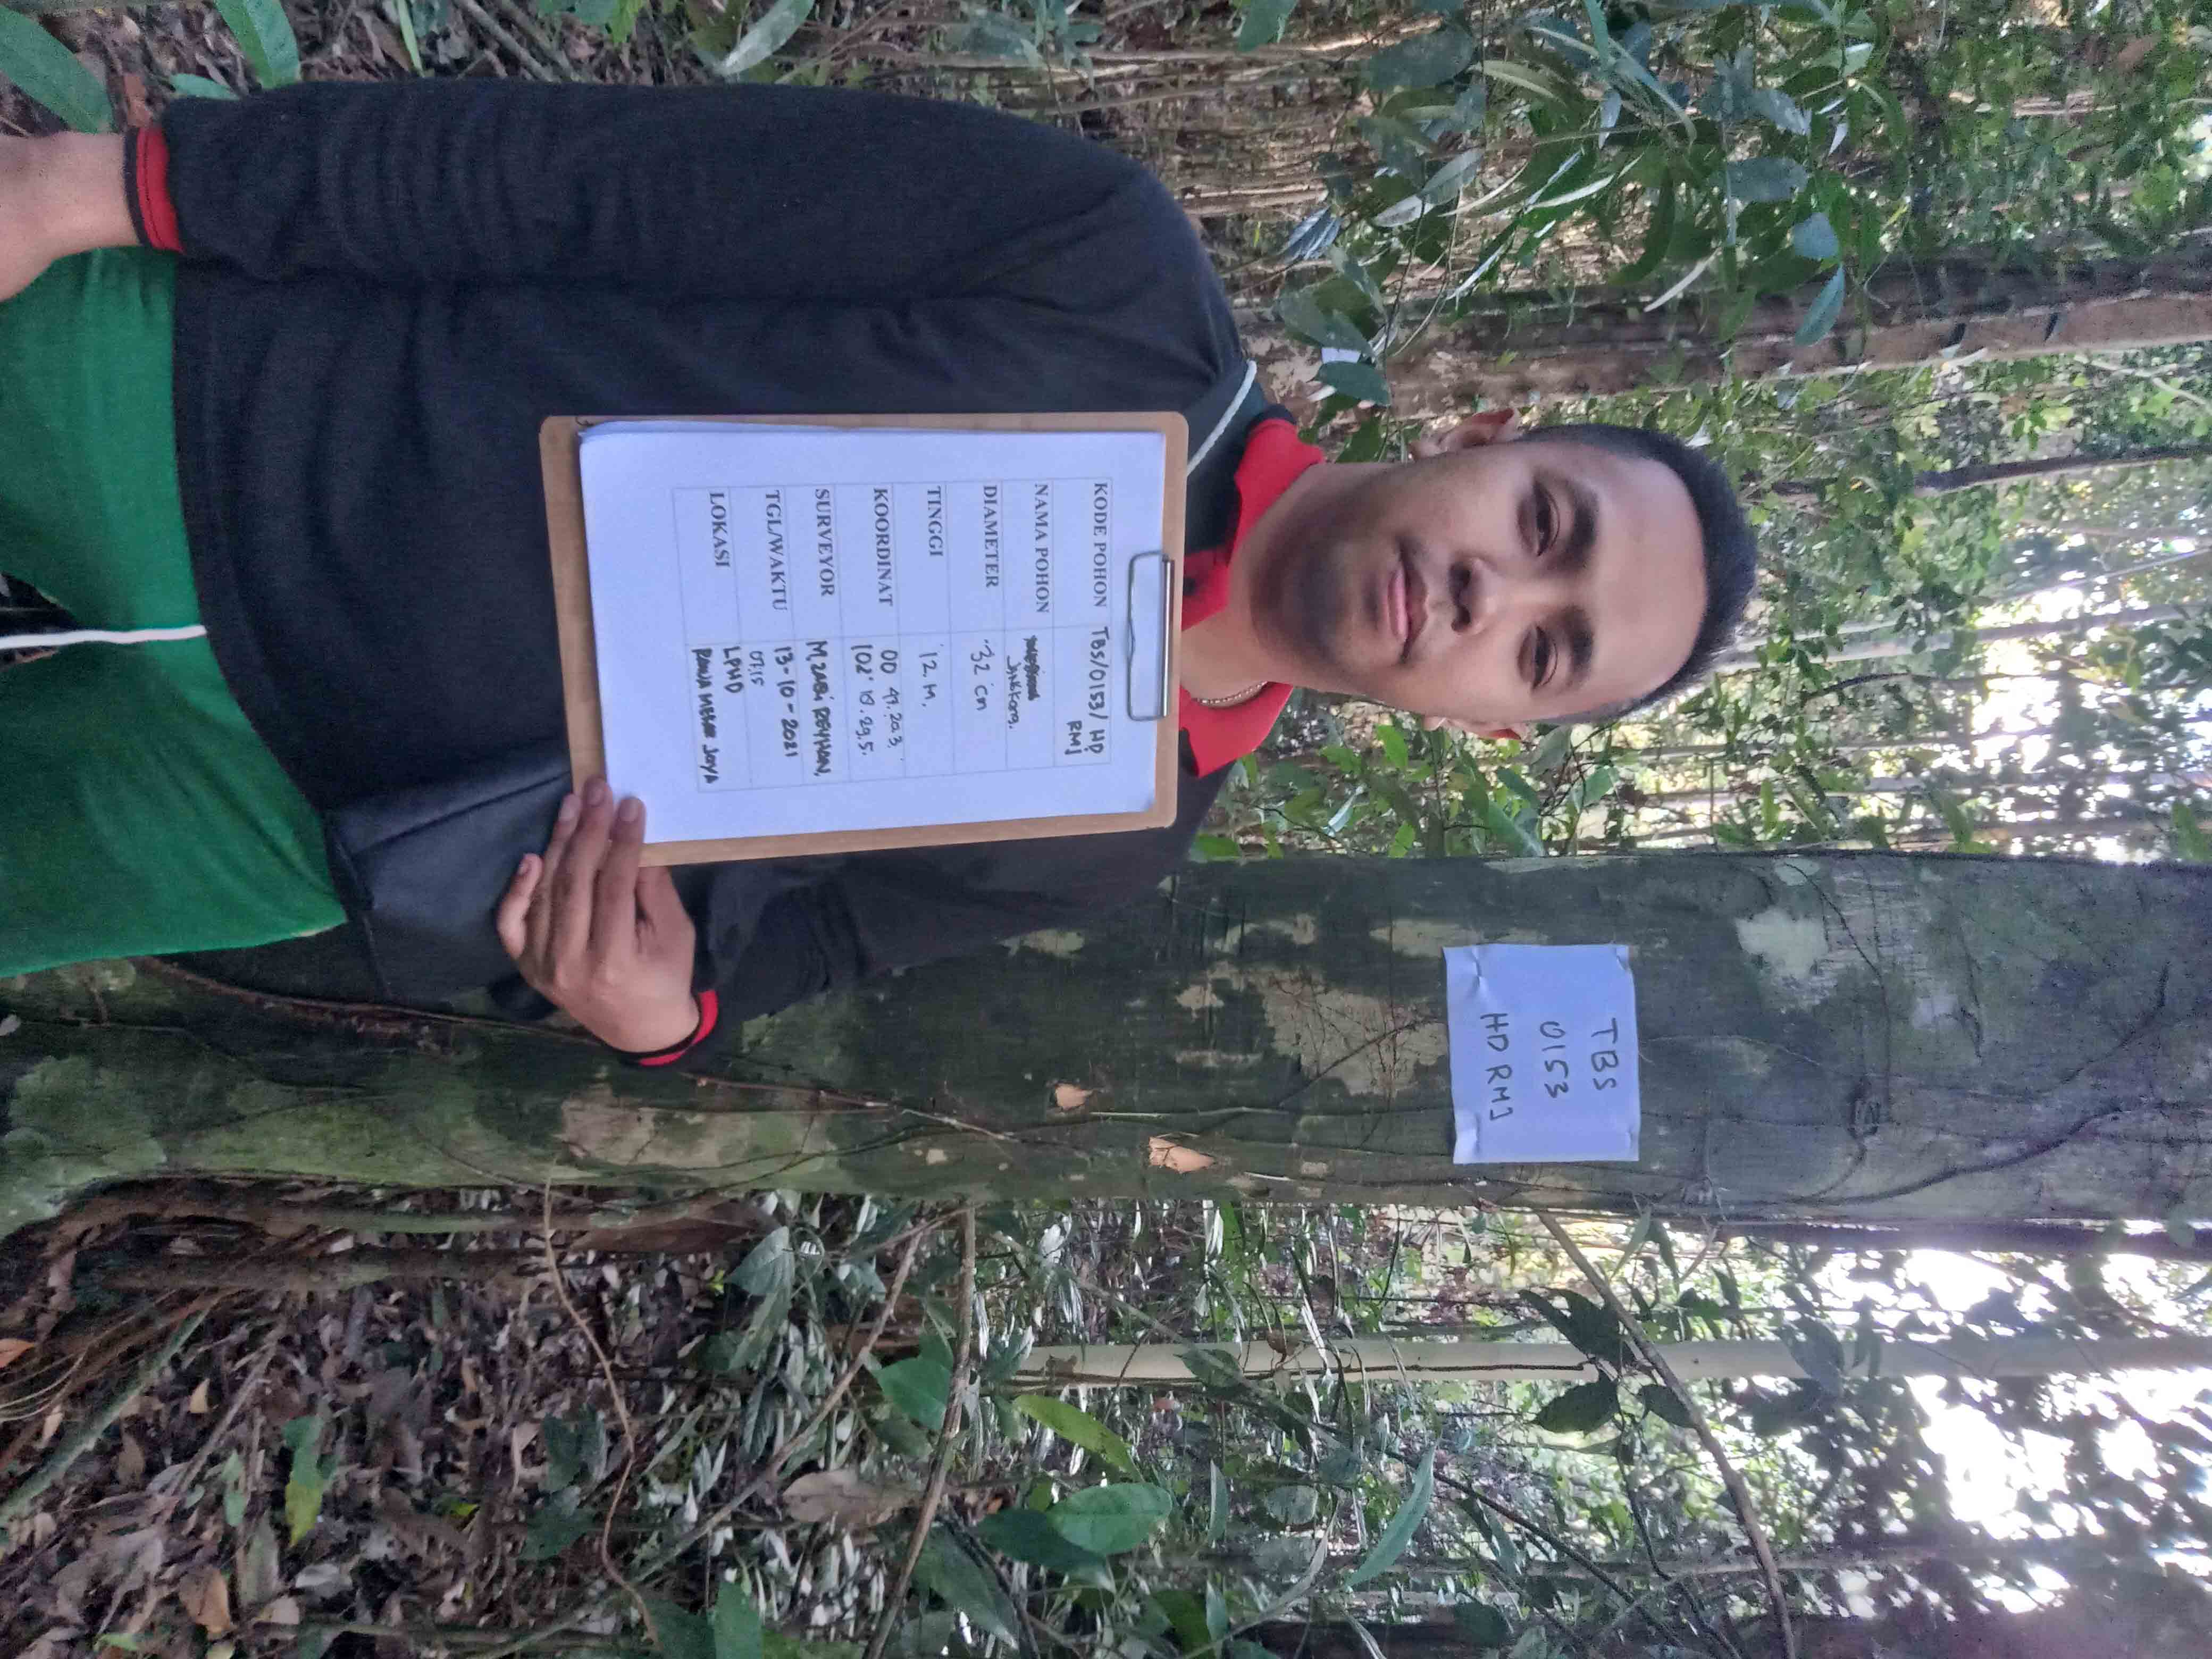 TBS
0153
HD RMJ
KODE POHON TBS/0153/ HD
RMJ
NAMA POHON
JANGKANG.
DIAMETER 32 cm
TINGGI 12. M.
KOORDINAT 00 47.20.3.
102 18.29.5.
SURVEYOR M. ZABI REYHAN.
TGL/WAKTU 13-10-2021
07.15
LOKASI LPHD
RAWA MEKAR JAYA